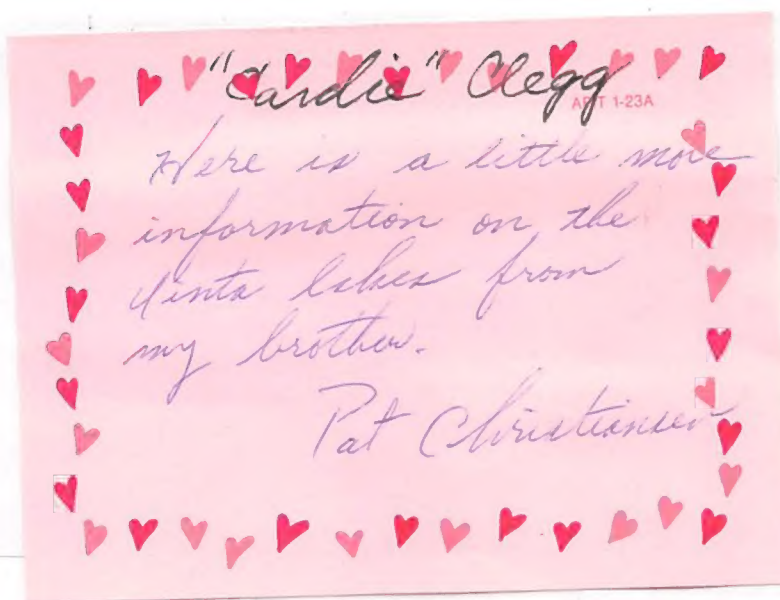 "Cardie" Clegg
APT 1-23A
Here is a little more
information on the
Uinta lakes from
my brother.
Pat Christiansen